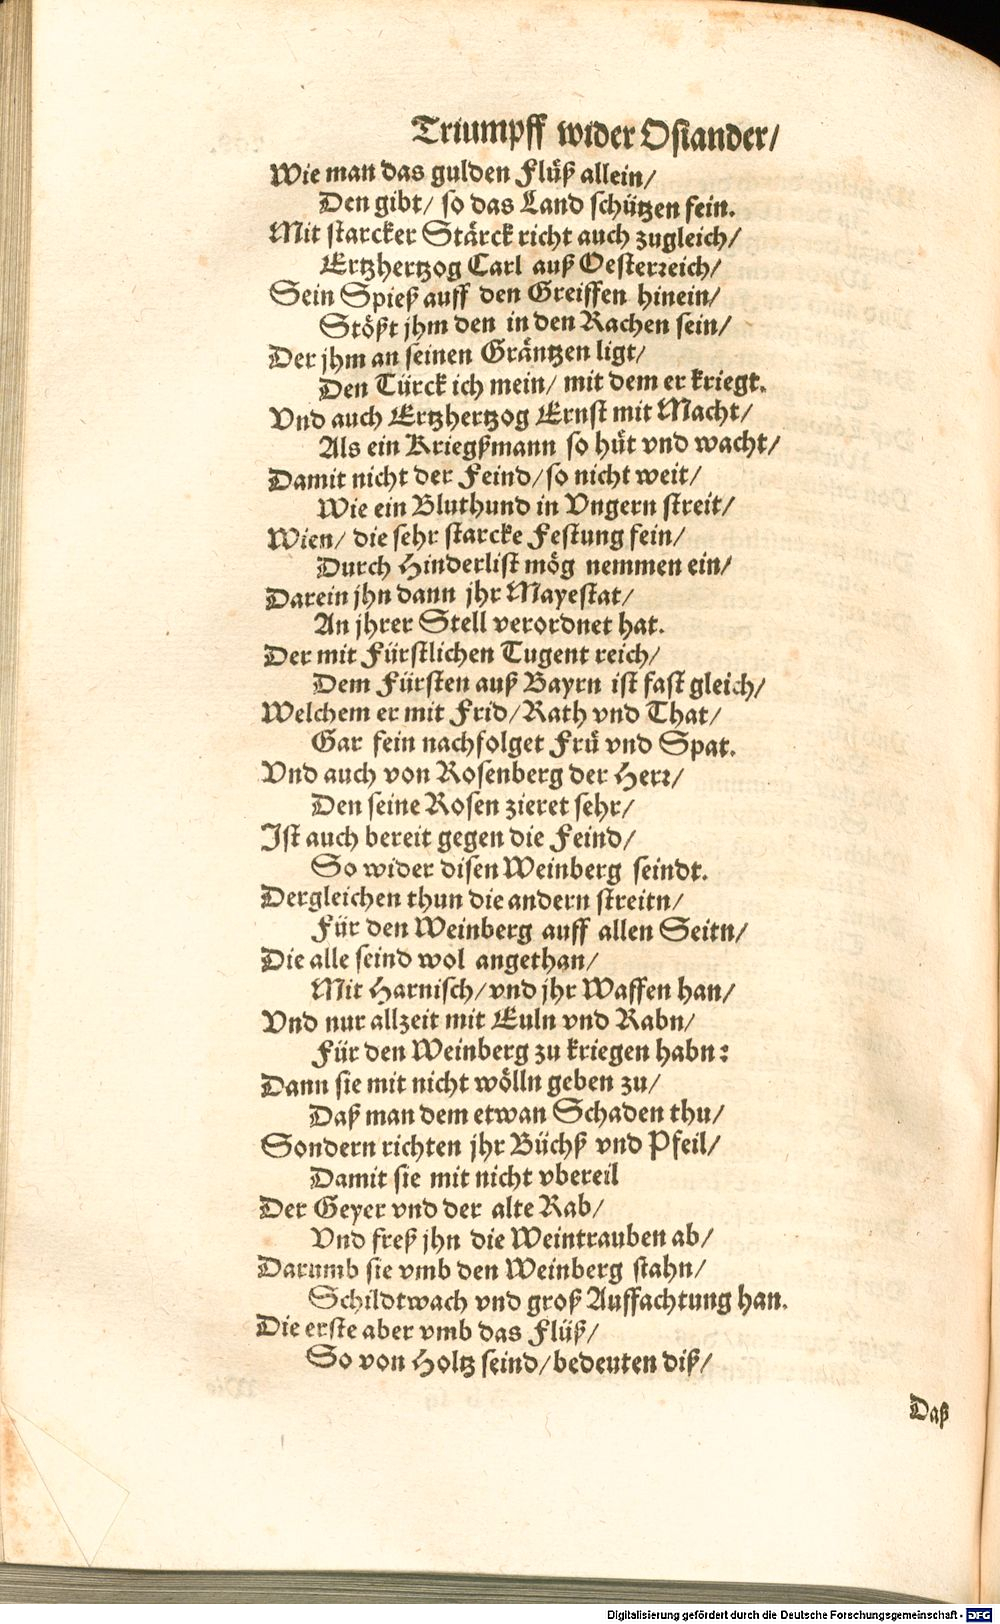 Triumpff wider Osiander/
Wie man das gulden Flüß allein/
Den gibt/ so das Land schützen fein.
Mit starcker Stärck richt auch zugleich/
Ertzhertzog Carl auß Oesterreich/
Sein Spieß auff den Greiffen hinein/
Stößt jhm den in den Rachen sein/
Der jhm an seinen Gräntzen ligt/
Den Türck ich mein/ mit dem er kriegt.
Vnd auch Ertzhertzog Ernst mit Macht/
Als ein Kriegßmann so hüt vnd wacht/
Damit nicht der Feind/ so nicht weit/
Wie ein Bluthund in Vngern streit/
Wien/ die sehr starcke Festung fein/
Durch Hinderlist mög nemmen ein/
Darein jhn dann jhr Mayestat/
An jhrer Stell verordnet hat.
Der mit Fürstlichen Tugent reich/
Dem Fürsten auß Bayrn ist fast gleich/
Welchem er mit Frid/ Rath vnd That/
Gar fein nachfolget Frü vnd Spat.
Vnd auch von Rosenberg der Herr/
Den seine Rosen zieret sehr/
Ist auch bereit gegen die Feind/
So wider disen Weinberg seindt.
Dergleichen thun die andern streitn/
Für den Weinberg auff allen Seitn/
Die alle seind wol angethan/
Mit Harnisch/ vnd jhr Waffen han/
Vnd nur allzeit mit Euln vnd Rabn/
Für den Weinberg zu kriegen habn:
Dann sie mit nicht wölln geben zu/
Daß man dem etwan Schaden thu/
Sondern richten jhr Büchß vnd Pfeil/
Damit sie mit nicht vbereil
Der Geyer vnd der alte Rab/
Vnd freß jhn die Weintrauben ab/
Darumb sie vmb den Weinberg stahn/
Schildtwach vnd groß Auffachtung han.
Die erste aber vmb das Flüß/
So von Holtz seind/ bedeuten diß/
Daß
Digitalisierung gefördert durch die Deutsche Forschungsgemeinschaft - DFG